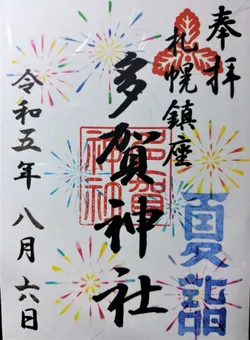 奉拝
札幌鎮座
夏詣
多賀神社
多賀神社
令和五年八月六日